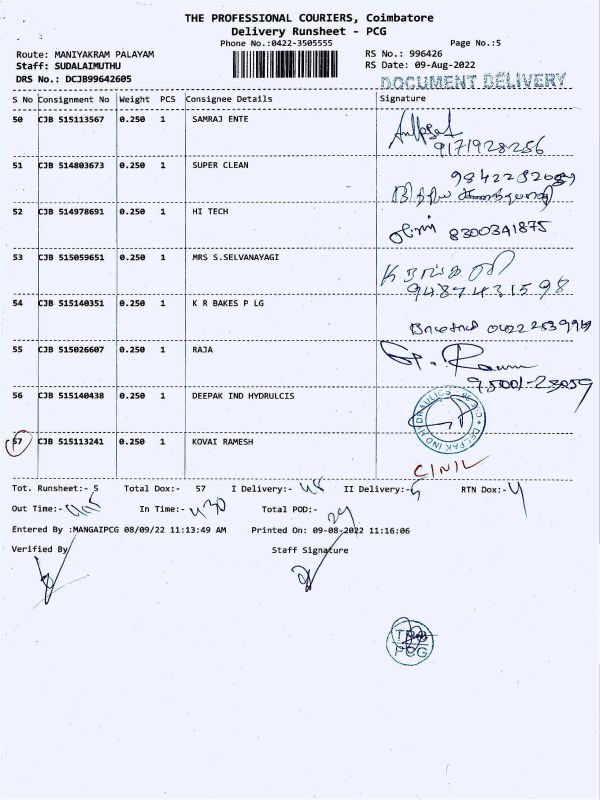 THE PROFESSIONAL COURIERS, Coimbatore
Delivery Runsheet - PCG
Phone No.:0422-3505555
Page No.:5
Route: MANIYAKRAM PALAYAM
RS No.: 996426
Staff: SUDALAIMUTHU
RS Date: 09-Aug-2022
DRS No.: DCJB99642605
DOCUMENT DELIVERY
S No Consignment No Weight PCS Consignee Details Signature
50 CJB 515113567 0.250 1 SAMRAJ ENTE
9171928256
51 CJB 514803673 0.250 1 SUPER CLEAN
52 CJB 514978691 0.250 1 HI TECH 8300341875
53 CJB 515059651 0.250 1 MRS S.SELVANAYAGI
9487431598
54 CJB 515140351 0.250 1 K R BAKES P LG
55 CJB 515026607 0.250 1 RAJA
56 CJB 515140438 0.250 1 DEEPAK IND HYDRULCIS
57 CJB 515113241 0.250 1 KOVAI RAMESH
Tot. Runsheet:- 5 Total Dox:- 57 I Delivery:- II Delivery:- RTN Dox:-
Out Time:- In Time:- Total POD:-
Entered By :MANGAIPCG 08/09/22 11:13:49 AM Printed On: 09-08-2022 11:16:06
Verified By Staff Signature
PCG